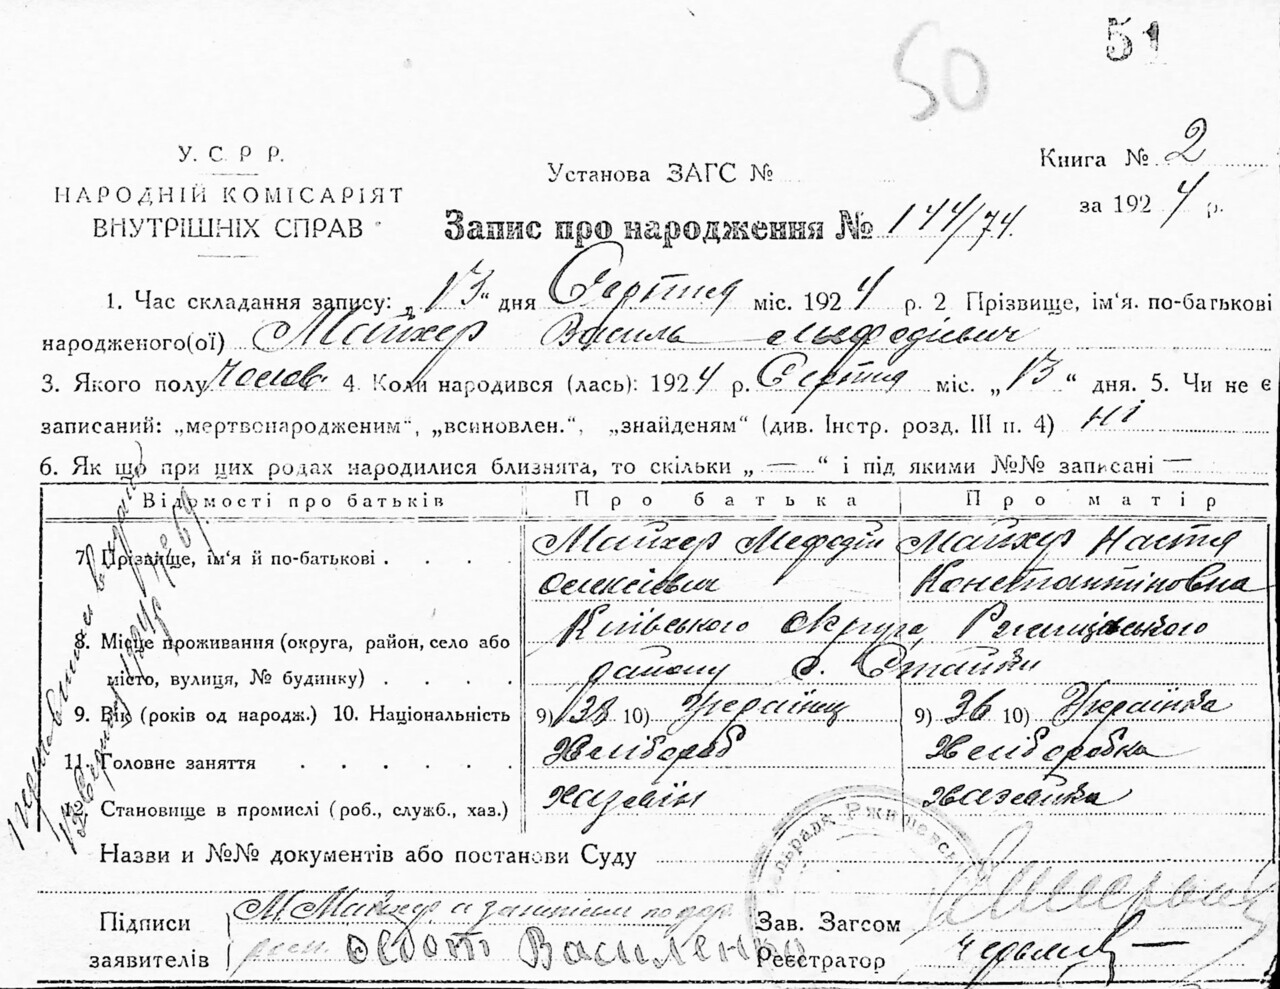 51
50
У. С. Р. Р.
НАРОДНІЙ КОМІСАРІЯТ
ВНУТРІШНІХ СПРАВ
Установа ЗАГС №
Книга № 2
за 1924 р.
Запис про народження № 144/74.
1. Час складання запису: „13“ дня Серпня міс. 1924 р. 2 Прізвище, ім'я. по-батькові
народженого(ої) Майхер Василь Мефодієвич
3. Якого полу Чолов. 4. Коли народився (лась): 1924 р. Серпня міс. „13“ дня. 5. Чи не є
записаний: „мертвонародженим“, „всиновлен.“, „знайденям“ (див. Інстр. розд. III п. 4) ні
6. Як що при цих родах народилися близнята, то скільки „ — “ і під якими №№ записані —
Відомості про батьків Про батька Про матір
7. Прізвище, ім'я й по-батькові . . . . Майхер Мефодій Майхер Настя
Олексієвич Константіновна
8. Місце проживання (округа, район, село або Київського Округа, Ржищівського
місто, вулиця, № будинку) . . . . району с. Стайки
9. Вік (років од народж.) 10. Національність 9) 38 10) Українец 9) 36 10) Українка
11. Головне заняття . . . . . . Хлібороб Хліборобка
12. Становище в промислі (роб., служб., хаз.) хазяїн хазяйка
Назви и №№ документів або постанови Суду
Підписи
заявителів
М. Майхер а
Федот Василенко
Зав. Загсом
Реєстратор